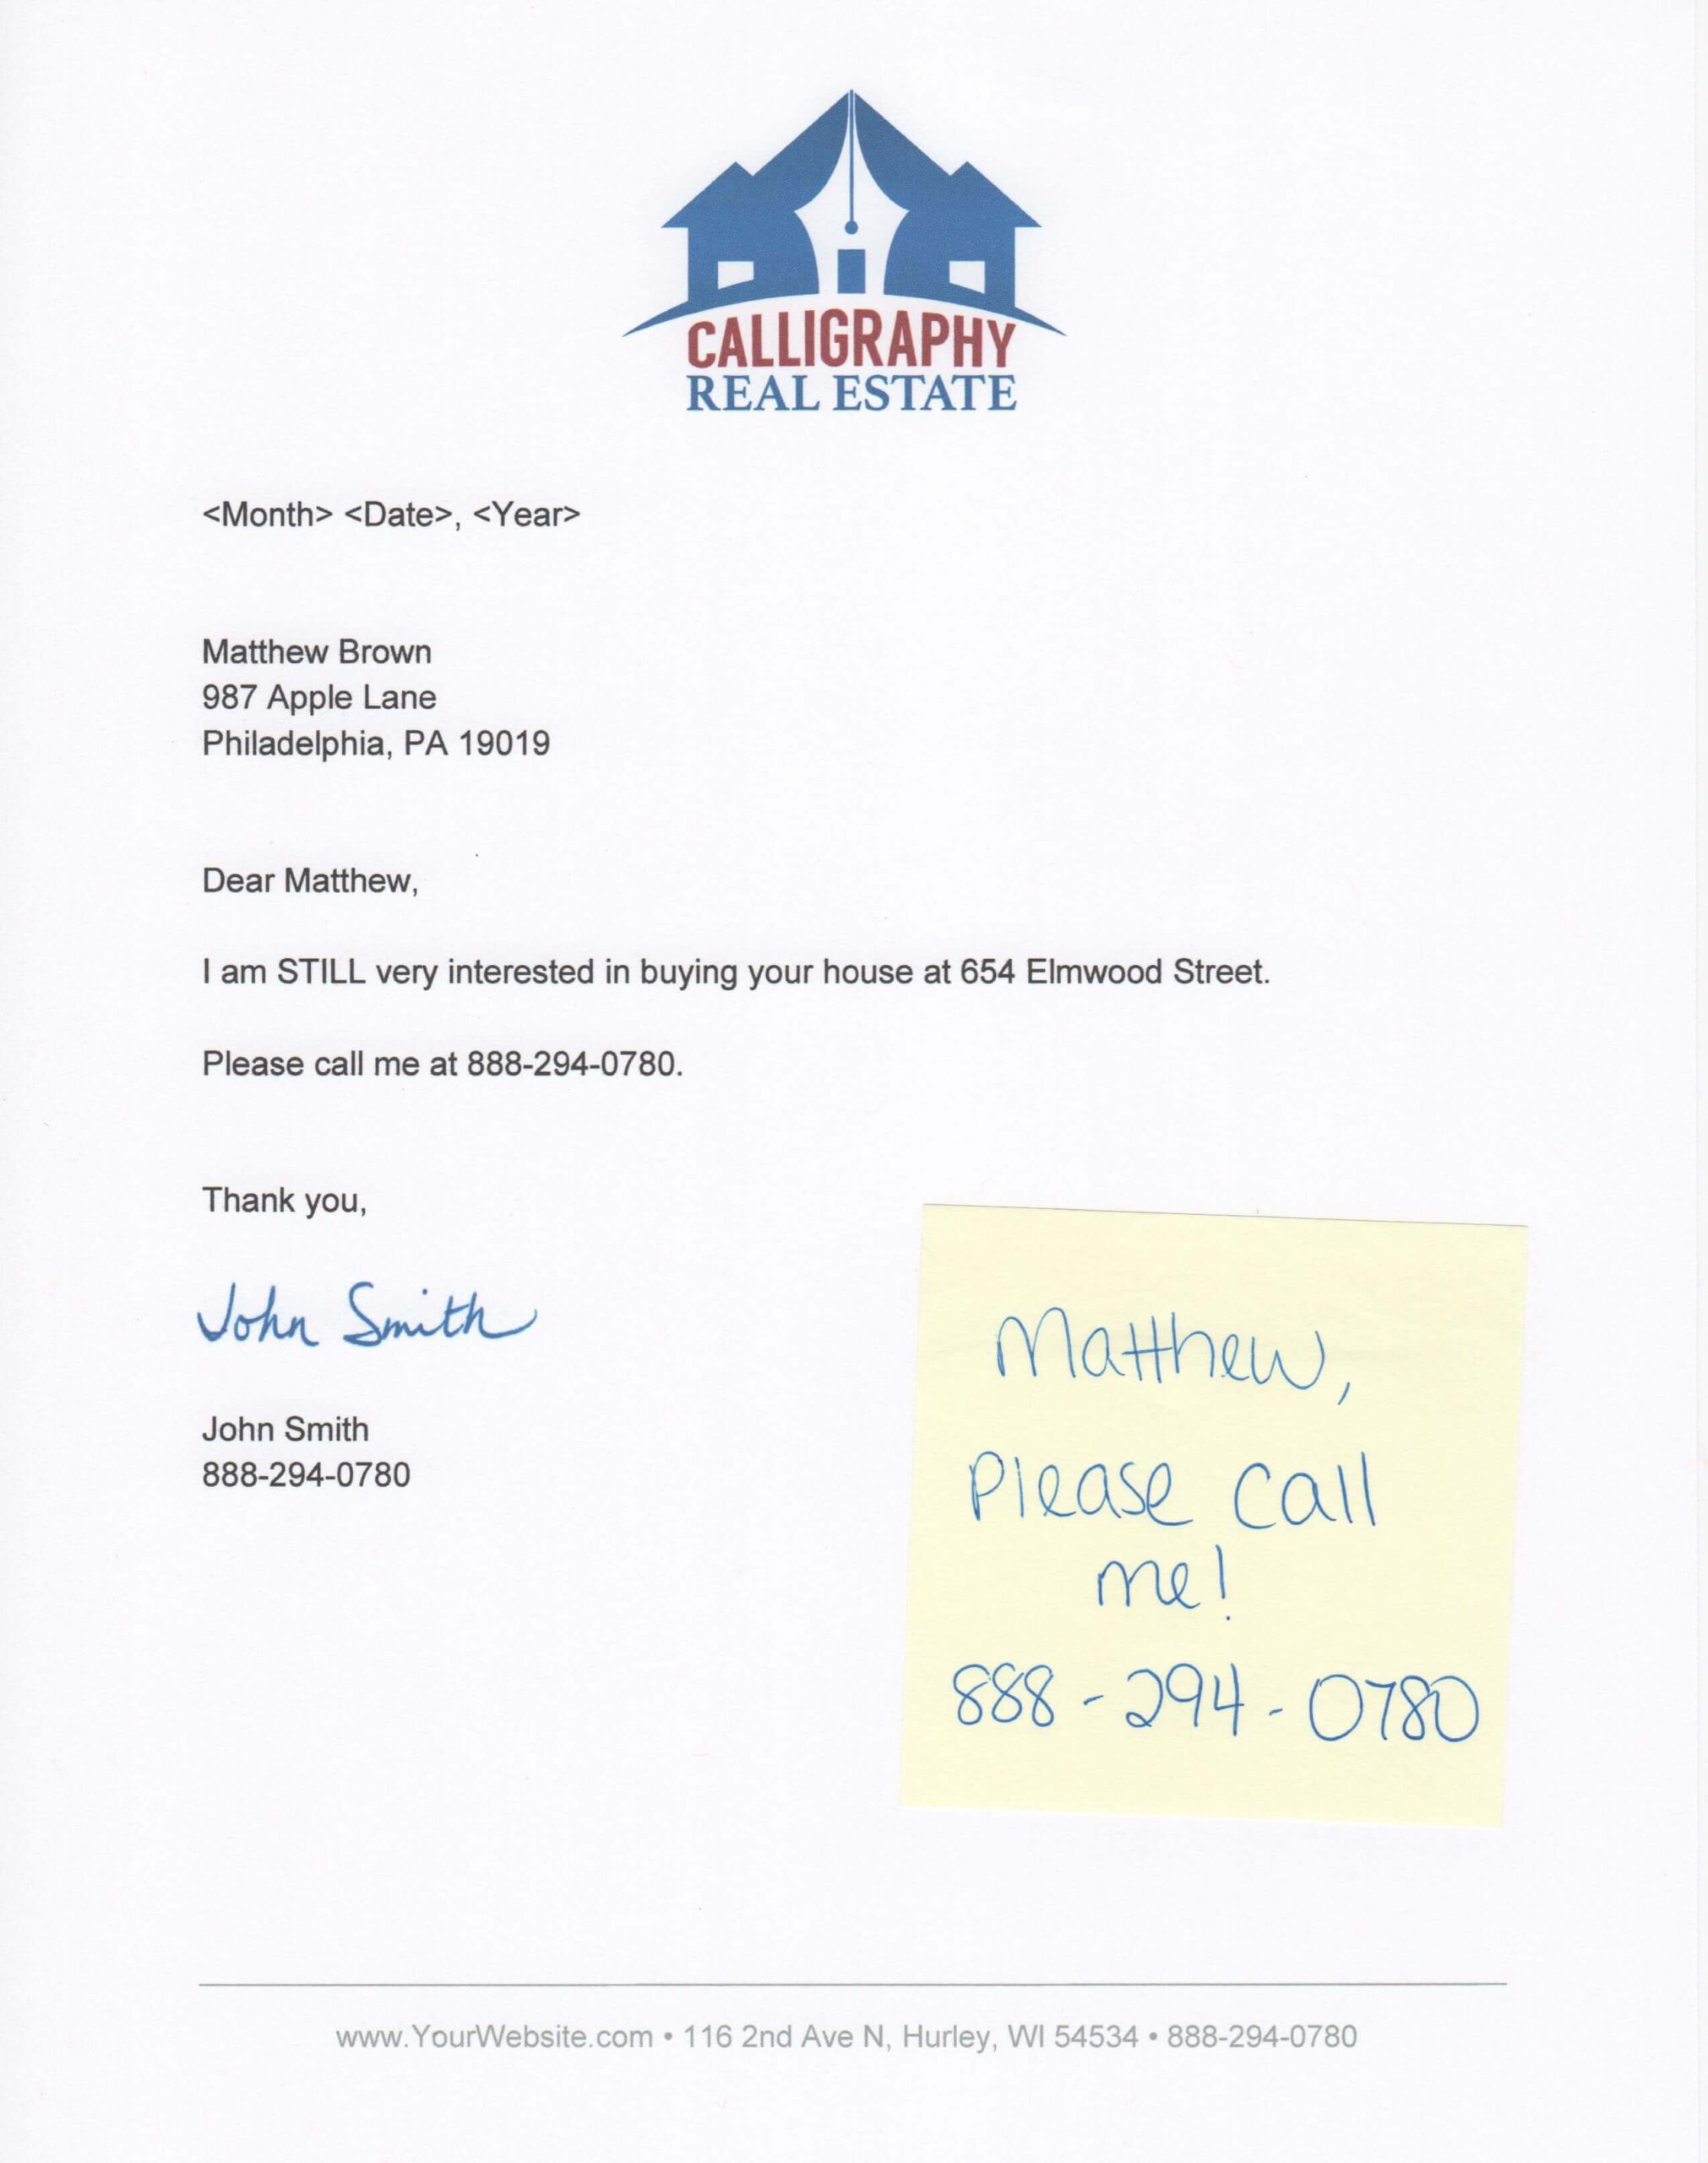 CALLIGRAPHY
REAL ESTATE
<Month> <Date>, <Year>
Matthew Brown
987 Apple Lane
Philadelphia, PA 19019
Dear Matthew,
I am STILL very interested in buying your house at 654 Elmwood Street.
Please call me at 888-294-0780.
Thank you,
John Smith
John Smith
888-294-0780
Matthew,
Please call
me!
888-294-0780
www.YourWebsite.com • 116 2nd Ave N, Hurley, WI 54534 • 888-294-0780